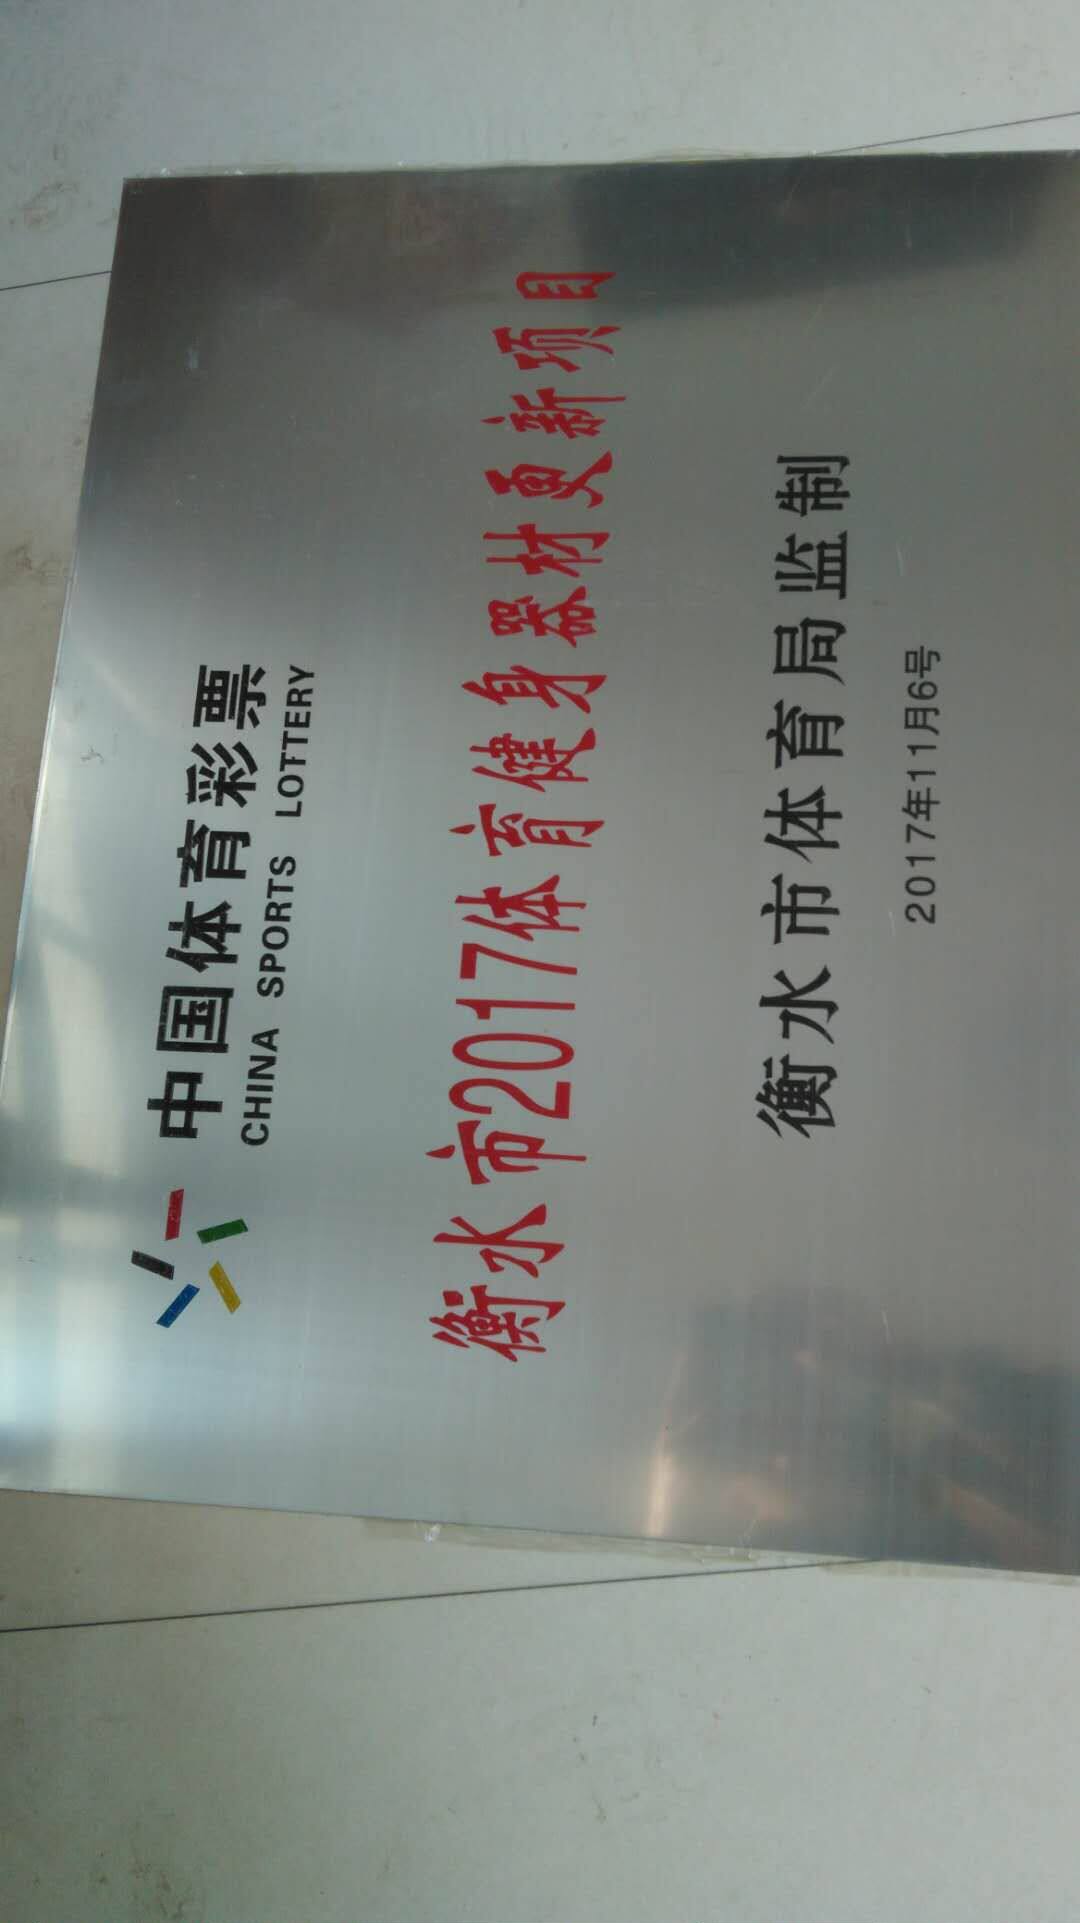 中国体育彩票
CHINA SPORTS LOTTERY
衡水市2017体育健身器材更新项目
衡水市体育局监制
2017年11月6号